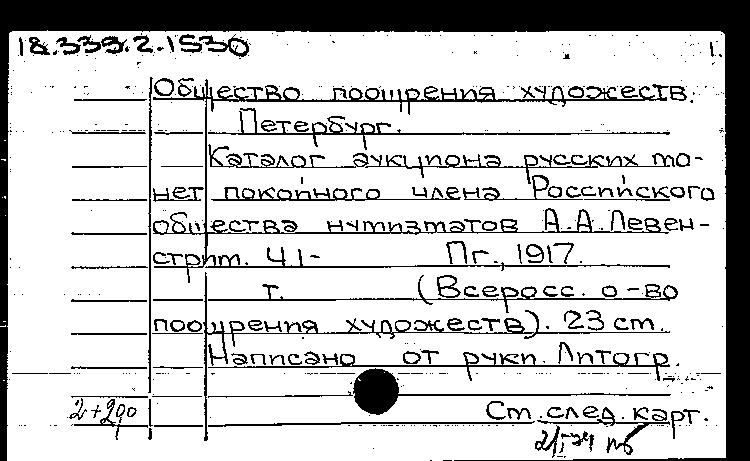 18.339.2.1530
1.
Общество поощрения художеств.
Петербург.
Каталог аукциона русских мо-
нет покойного члена Российского
общества нумизматов А.А.Левен-
стрим. Ч.I- Пг., 1917.
т. (Всеросс. о-во
поощрения художеств). 23 см.
Написано от руки. Литогр.
Ст. след. карт.
2+290